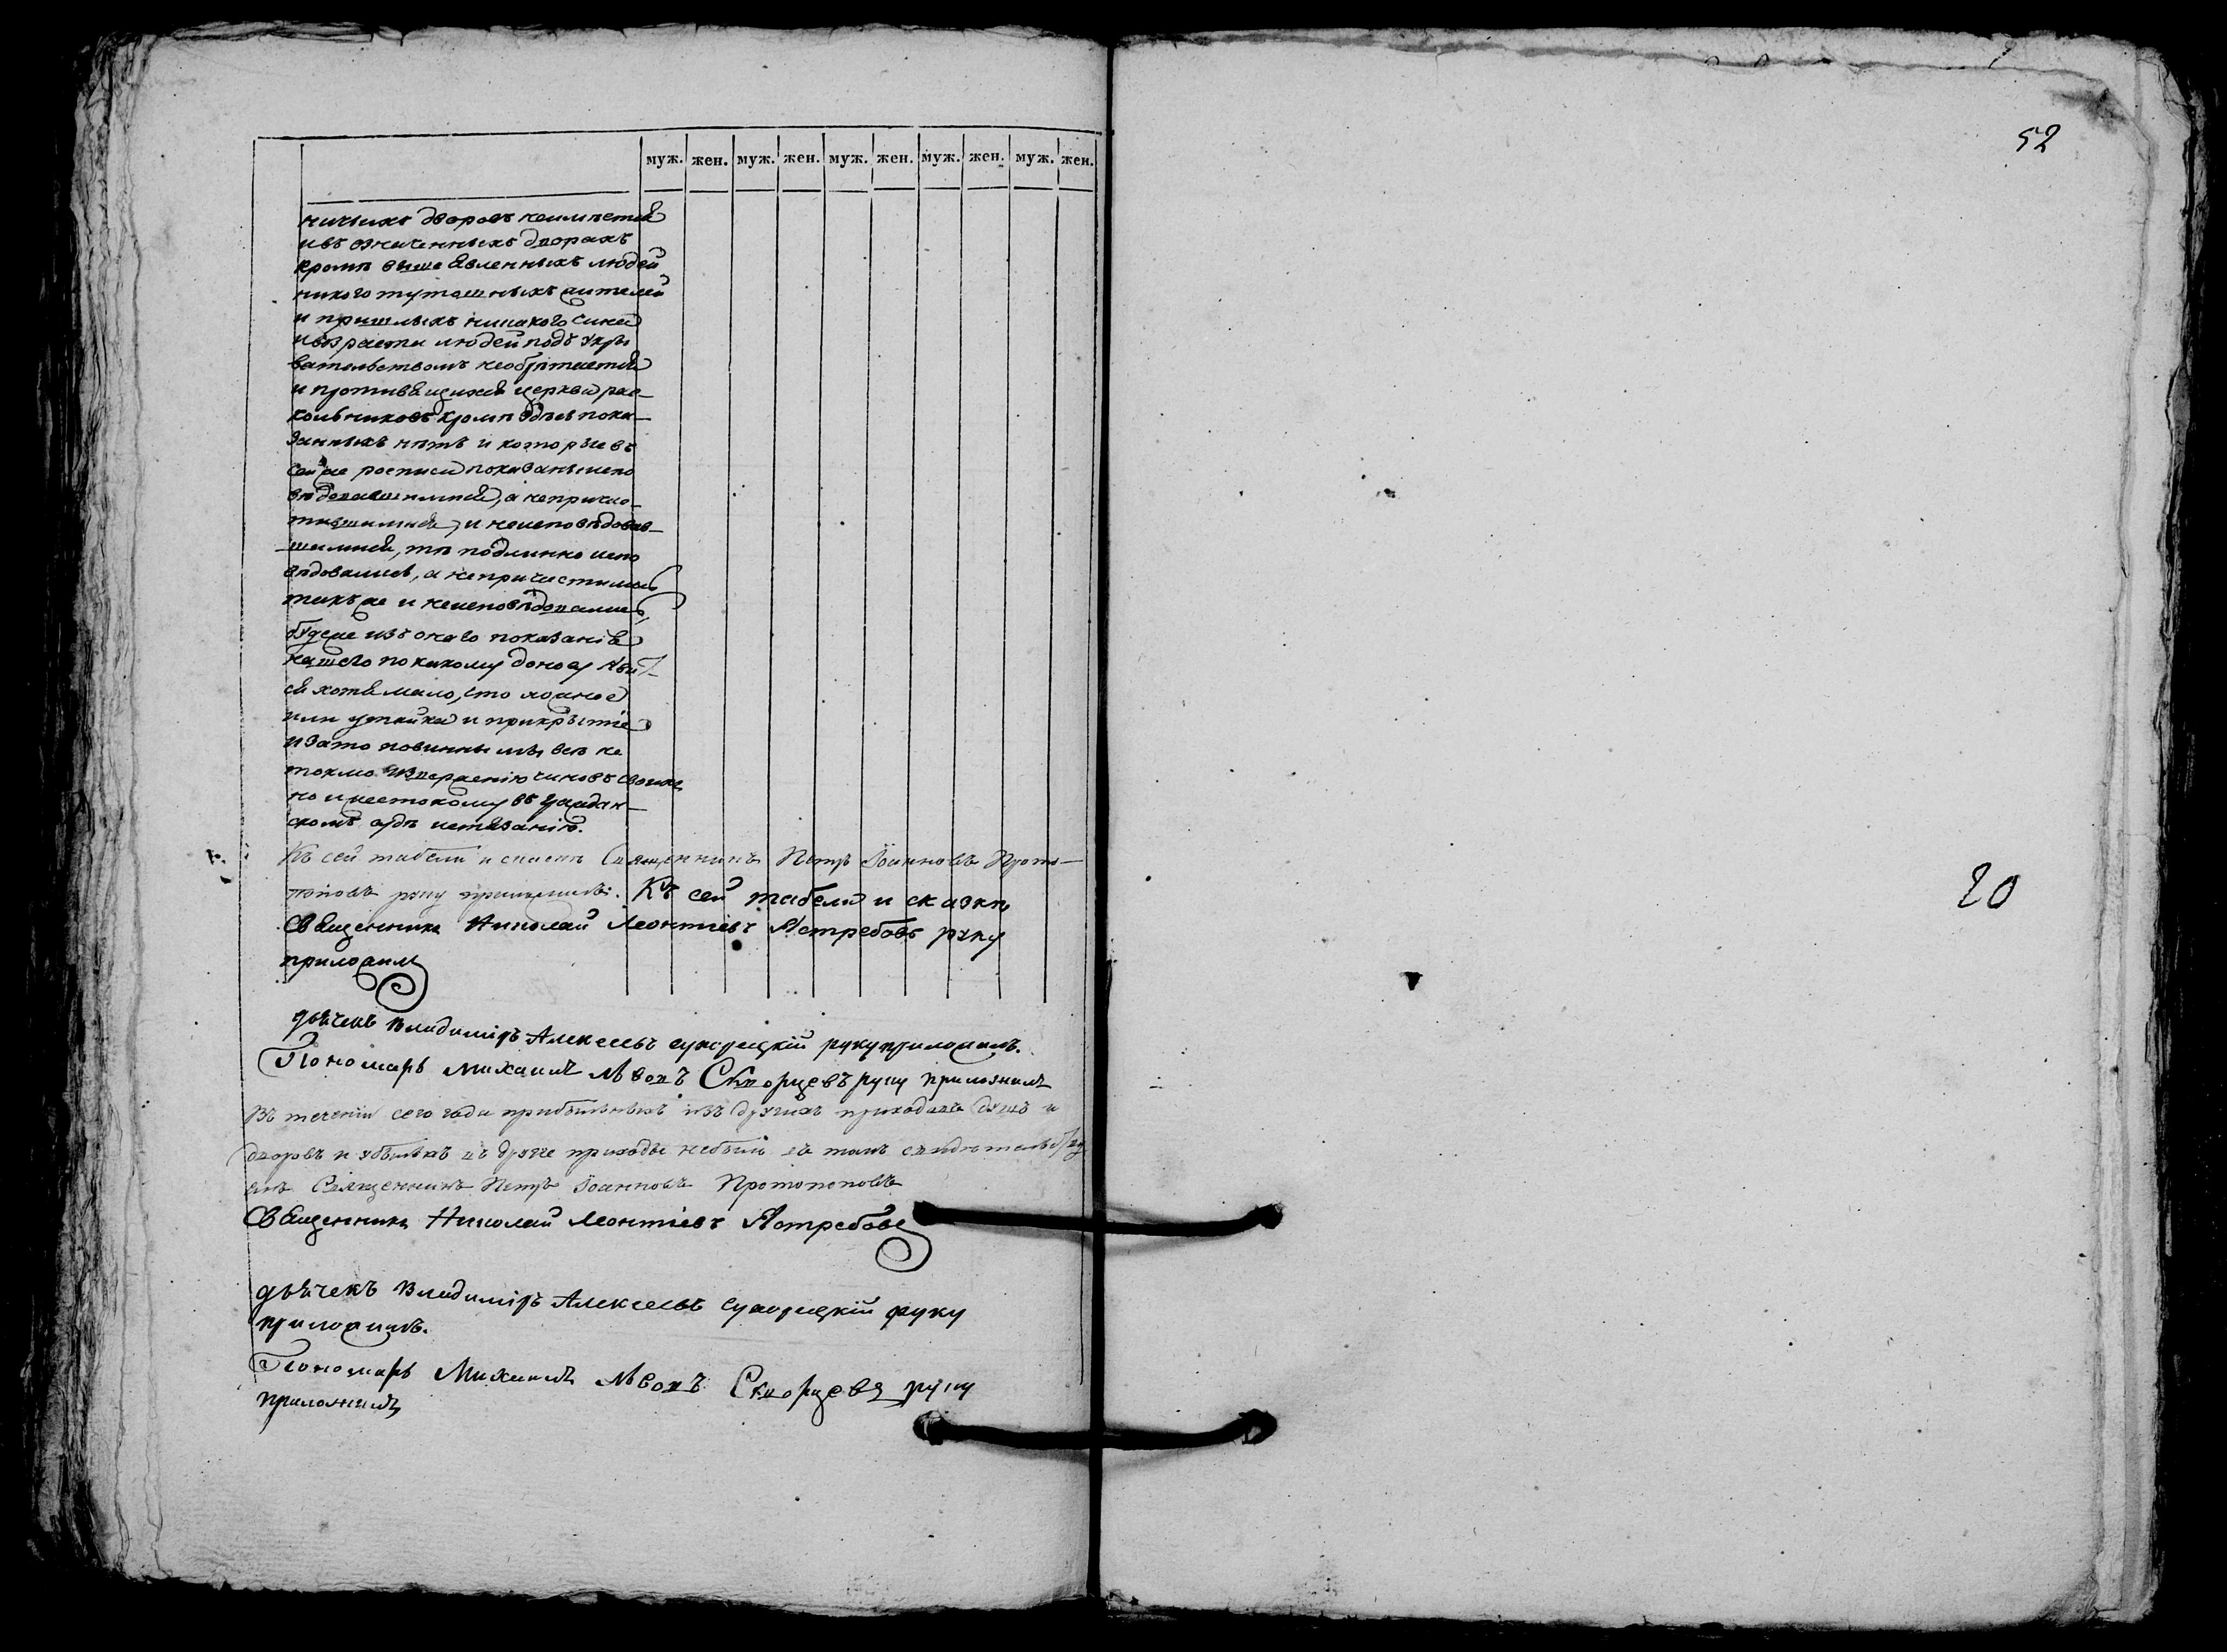 муж. жен. муж. жен. муж. жен. муж. жен. муж. жен.
52
ничьихъ дворовъ неимѣется
ивъ означенныхъ дворахъ
кромѣ выше явленныхъ людей
никого тутошныхъ жителей
и пришлыхъ никакого чина
ивозраста людей подъ укры
вательствомъ необрѣтается
и противящихся церкви рас-
кольниковъ кромѣ здѣсь пока-
занныхъ нѣтъ и которые въ
сей же росписи показаны испо
вѣдовавшимися, а непричас-
тившимися, и неисповѣдовав-
шимися, тѣ подлинно испо
вѣдовались, а непричастились
также и неисповѣдовались,
буде же изъ онаго показанія
нашего покакому доносу яви
ся хотя мало, что ложное
или утайка и прикрытіе
изато повинны мы все не
токмо изверженію чиновъ своихъ
но и жестокому въ граждан-
скомъ судѣ истязанію.
Къ сей табели и сказкѣ Священникъ Петръ Іоанновъ Прото-
поповъ руку приложилъ. Къ сей табели и сказкѣ
Священникъ Николай Леонтіевъ Ястребовъ руку
приложилъ
20
дьячекъ Владиміръ Алексеевъ руку приложилъ.
Пономарь Михаилъ Львовъ Скворцевъ руку приложилъ
Въ теченіи сего года прибылыхъ изъ другихъ приходовъ душъ и
дворовъ и убылыхъ въ другіе приходы небыло въ томъ свидѣтельству
емъ Священникъ Петръ Іоанновъ Протопоповъ
Священникъ Николай Леонтіевъ Ястребовъ
дьячекъ Владиміръ Алексеевъ руку
приложилъ.
Пономарь Михаилъ Львовъ Скворцевъ руку
приложилъ